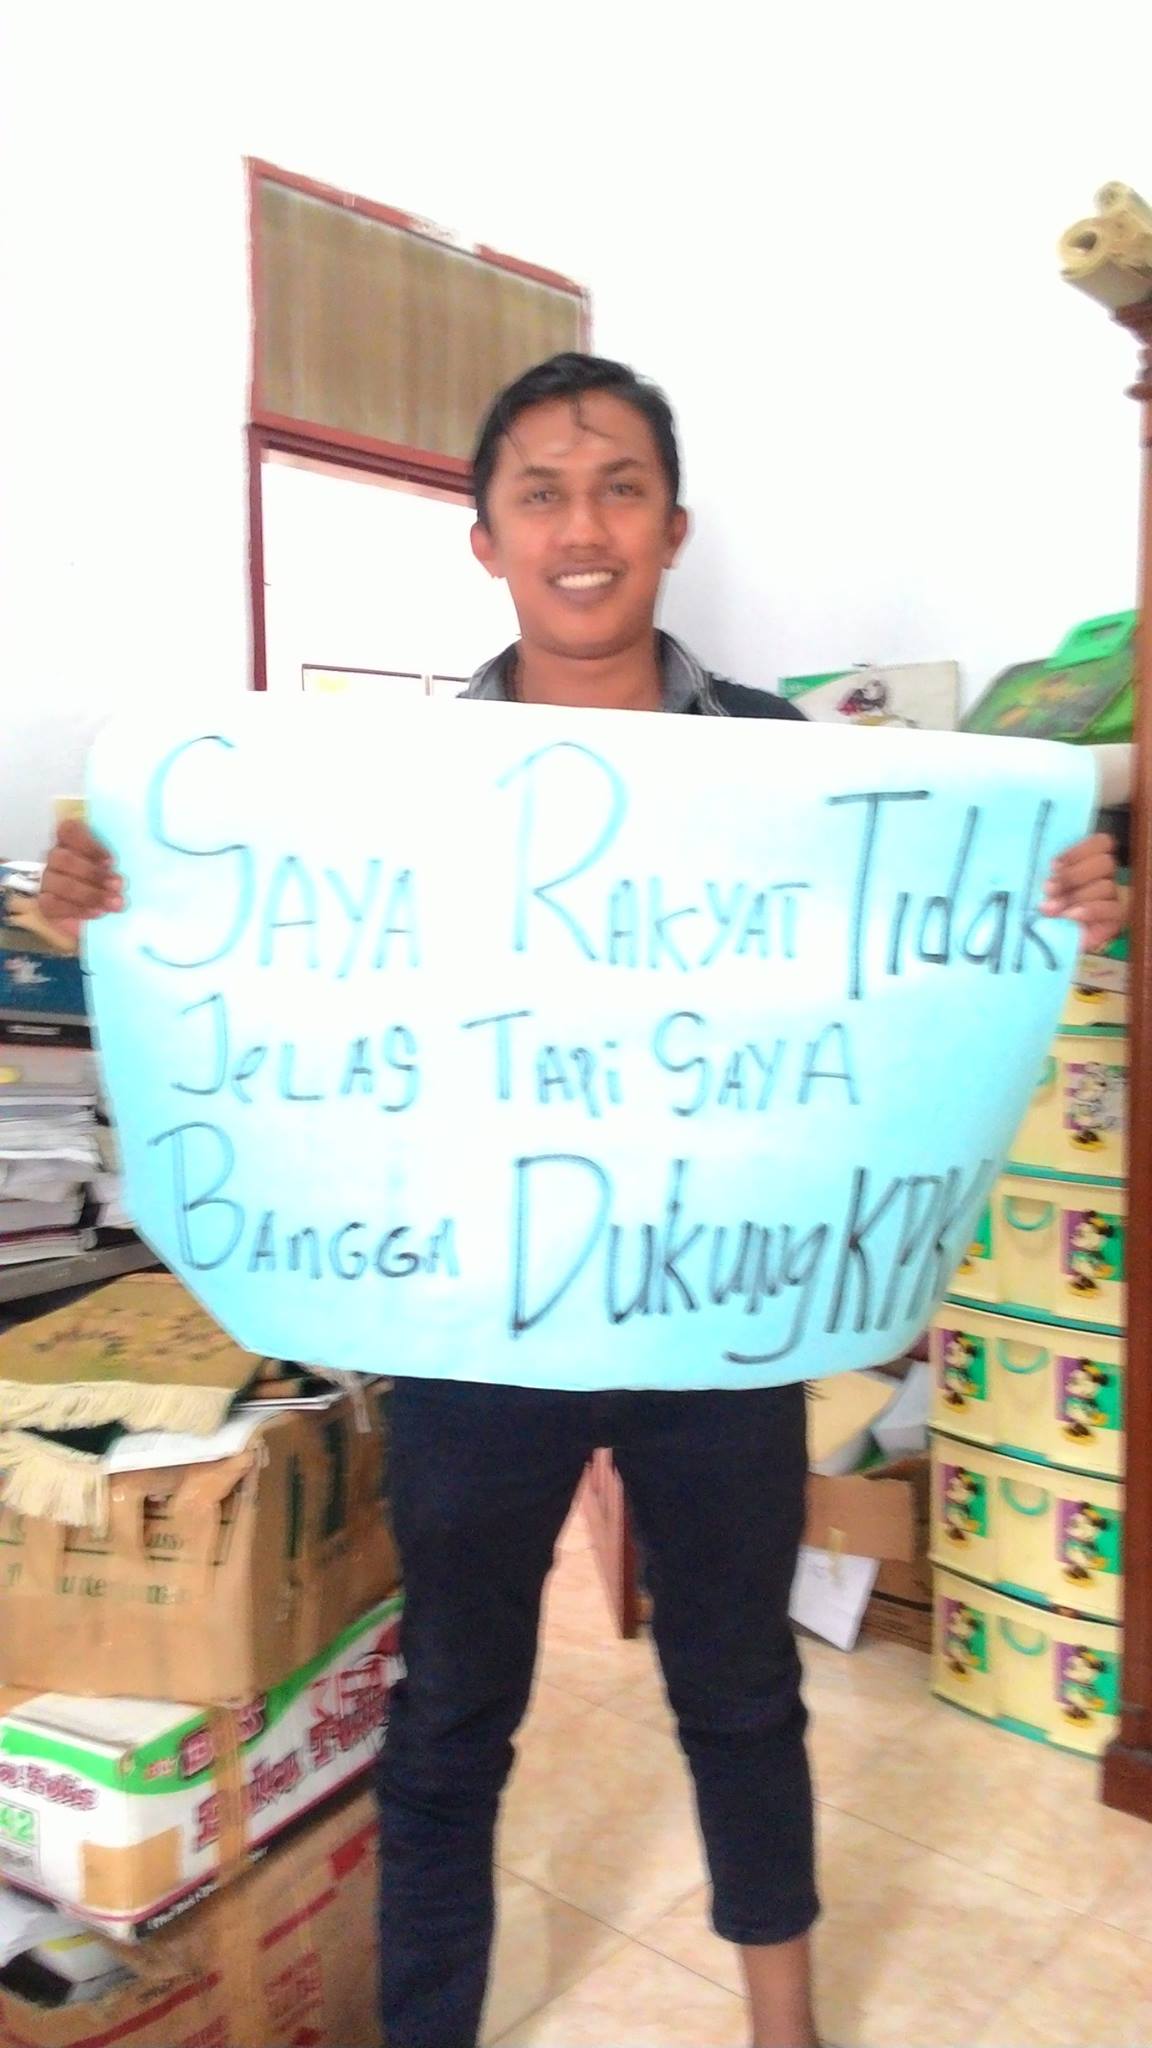 SAYA RAKYAT Tidak
JeLAS TAPi SAYA
BAnGGA DukungKPK